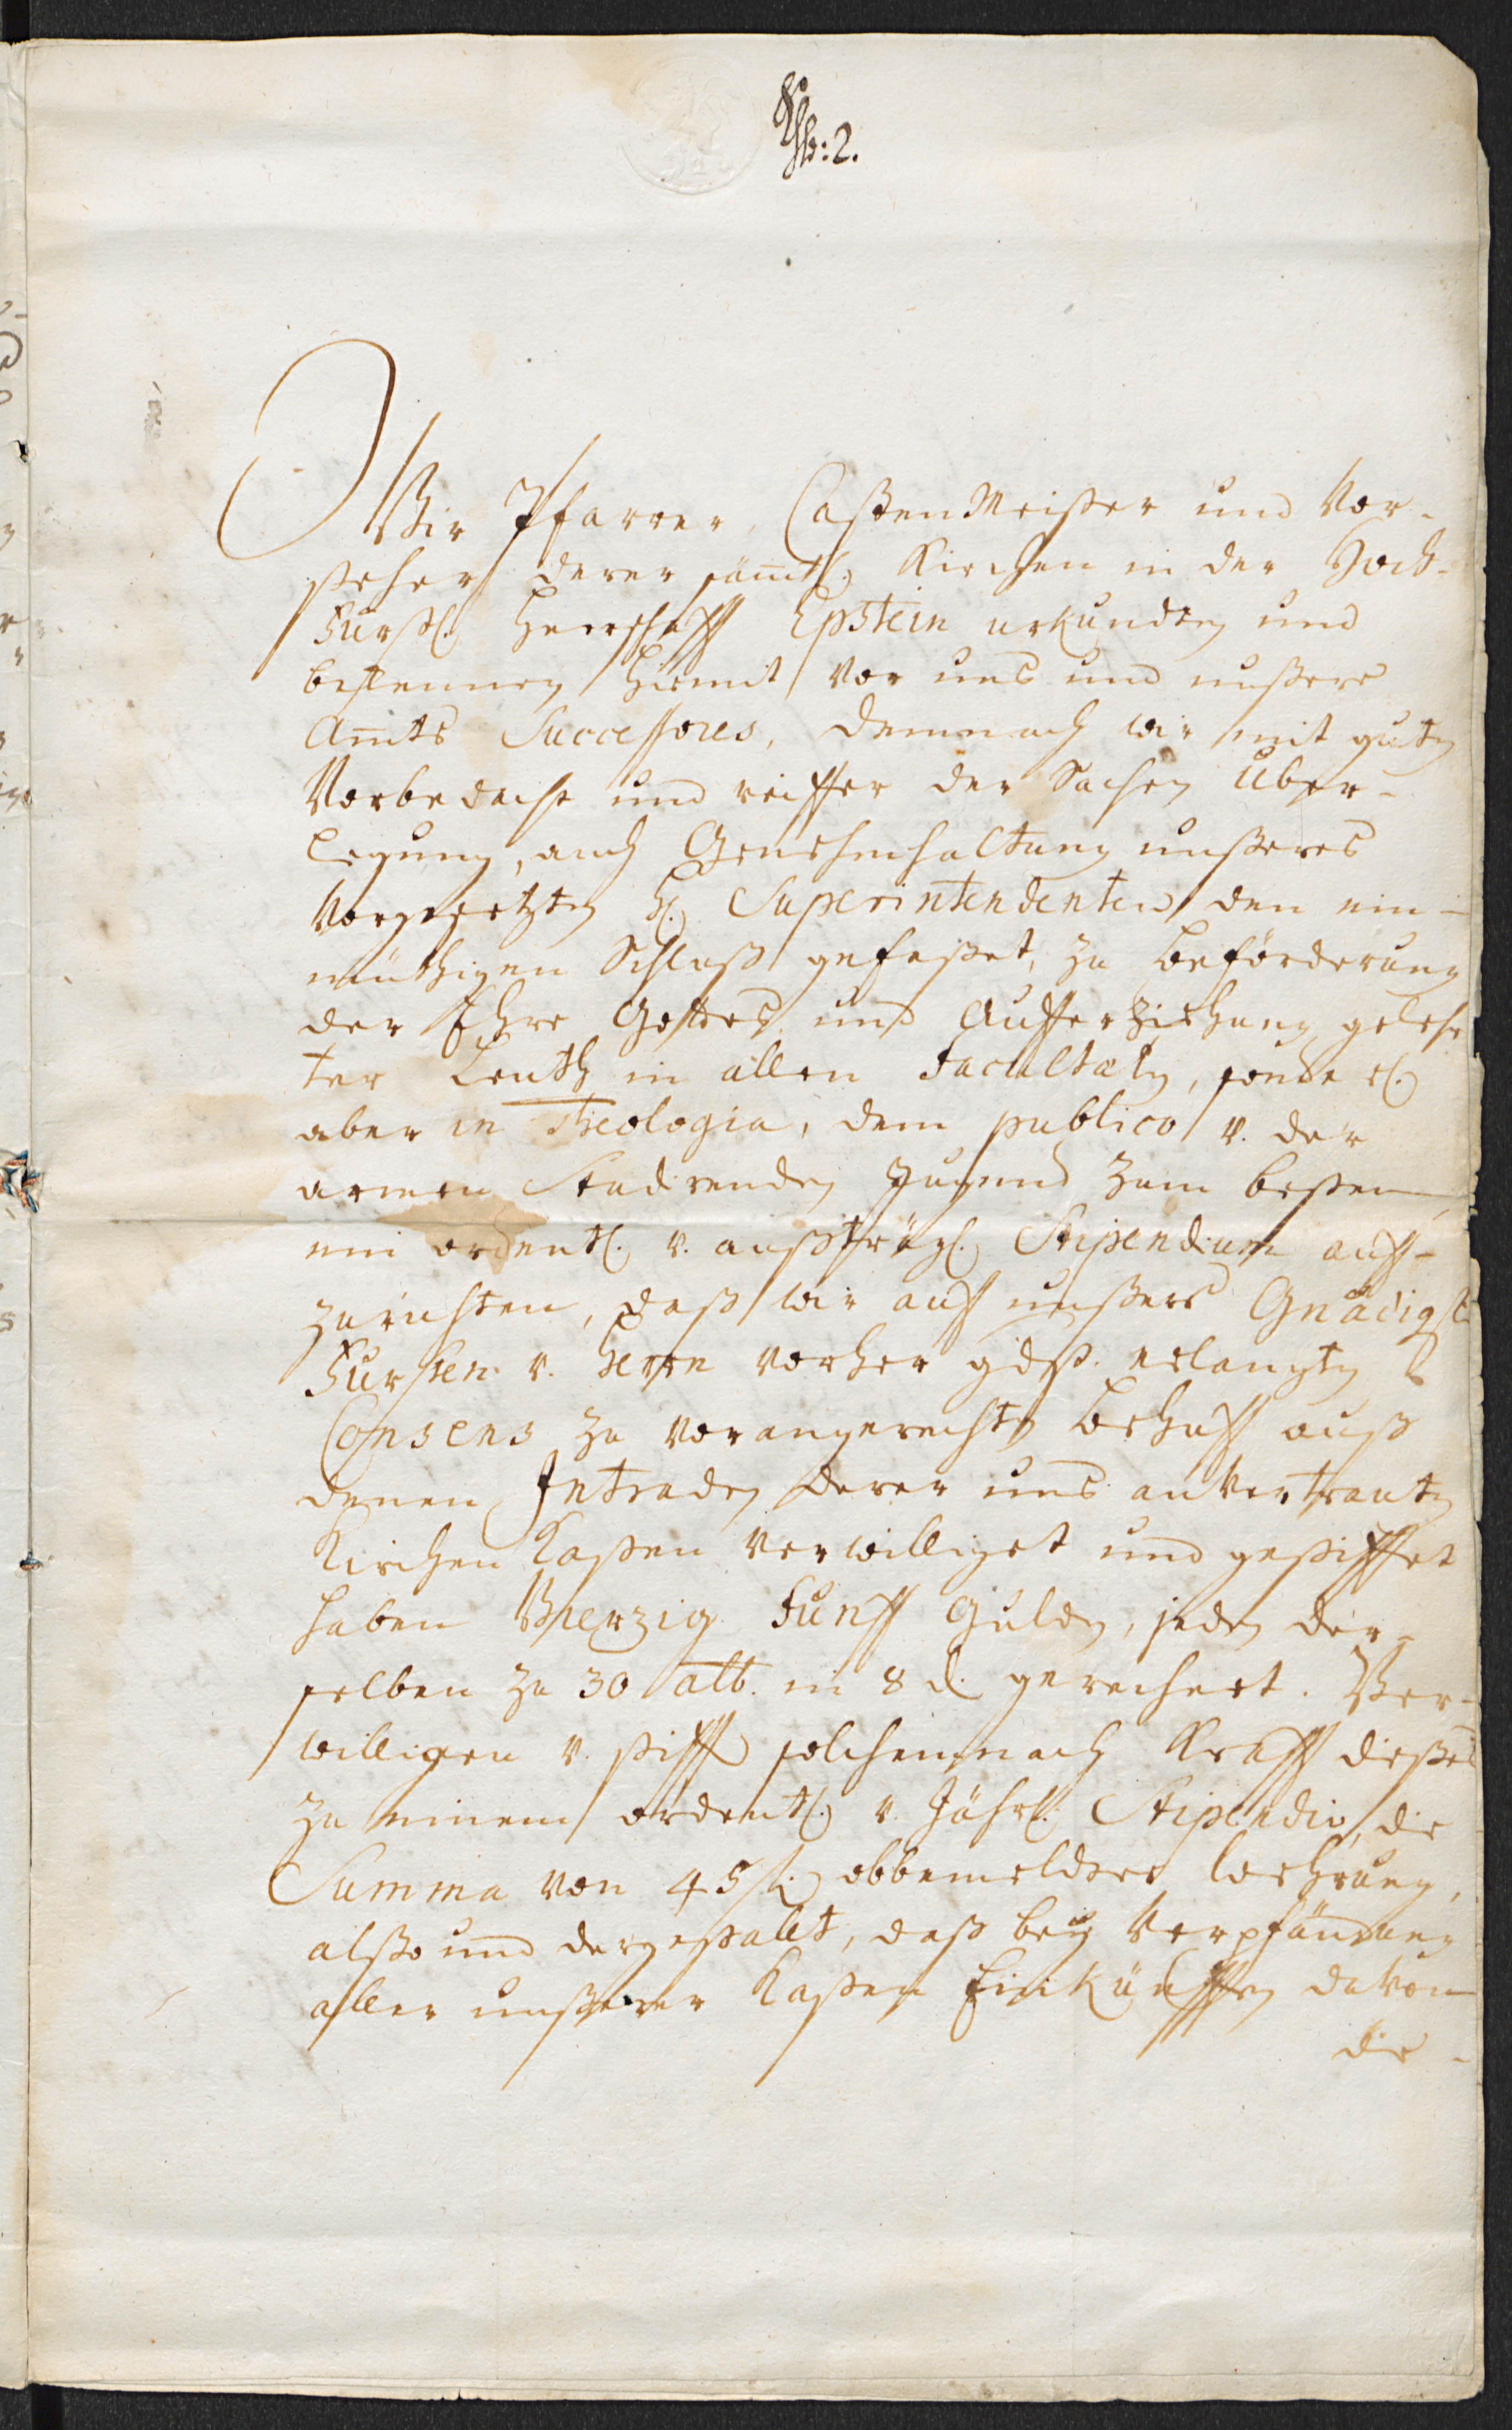 2.
Wir Pfarrer, CastenMeister und Vor-
steher derer sämtl. Kirchen in der Hoch-
Fürstl. Herrschafft Epstein urkunden und
bekennen hiermit vor uns und unßere
Amts Successores, demnach wir mit guten
Vorbedacht und reiffer der Sachen Uber-
legung, auch Genehmhaltung unßeres
Vorgesetzten H. Superintendenten den ein-
müthigen Schluß gefaßet, zu beförderung
der Ehre Gottes und Aufferziehung gelehr
ter Leuthe in allen Facultæten, sonderl.
aber in Theologia, dem publico v. der
armen Studirenden Jugend zum besten
ein ordentl. v. außträgl. Stipendium auff-
zurichten, daß wir auf unßers Gnädigst.
Fürsten v. Herrn vorher gdst. erlangten
Consens zu vorangeregten behuff auß
denen Intraden derer uns anvertrauten
Kirchen Casten verwilliget und gestifftet
haben Vierzig Fünff Gulden, jeden der-
selben zu 30 alb. in 8 d. gerechnet. Ver-
willigen v. stifften solchemnach Krafft dießes
zu einem ordentl. v. Jährl. Stipendio, die
Summa von 45 fl. obbemeldter Wehrung,
alßo und dergestallt, daß bey Verpfändung
aller unßerer Casten Einkünfften davon
die